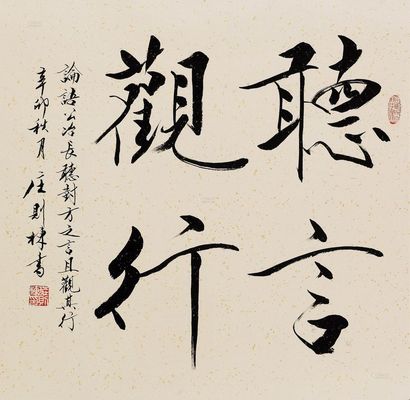 聽言
觀行
論語公冶長聽對方之言且觀其行
辛卯秋月庄則棟書